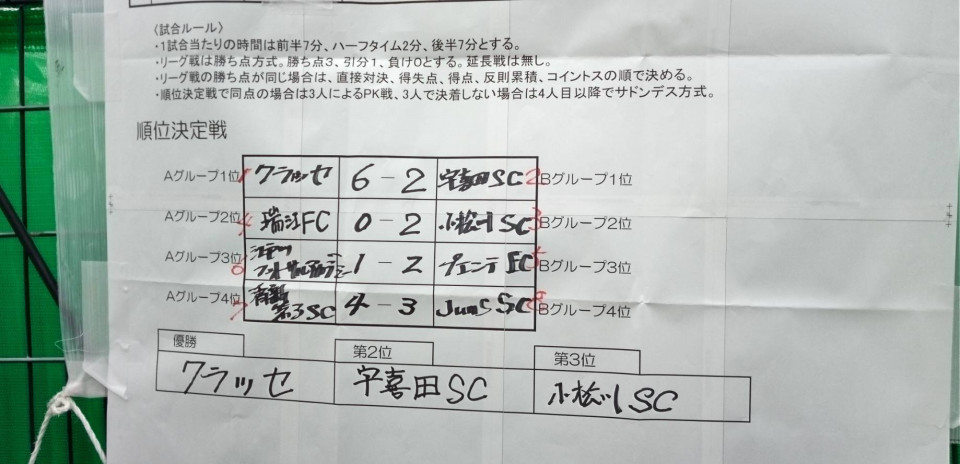 〈試合ルール〉
・1試合当たりの時間は前半7分、ハーフタイム2分、後半7分とする。
・リーグ戦は勝ち点方式。勝ち点3、引分1、負け0とする。延長戦は無し。
・リーグ戦の勝ち点が同じ場合は、直接対決、得失点、得点、反則累積、コイントスの順で決める。
・順位決定戦で同点の場合は3人によるPK戦、3人で決着しない場合は4人目以降でサドンデス方式。
順位決定戦
Aグループ1位 1 クラッセ 6-2 宇喜田SC 2 Bグループ1位
Aグループ2位 4 瑞江FC 0-2 小松川SC 3 Bグループ2位
Aグループ3位 6 1-2 プエンテFC Bグループ3位
Aグループ4位 7 SC 4-3 JumSSC 8 Bグループ4位
優勝 第2位 第3位
クラッセ 宇喜田SC 小松川SC